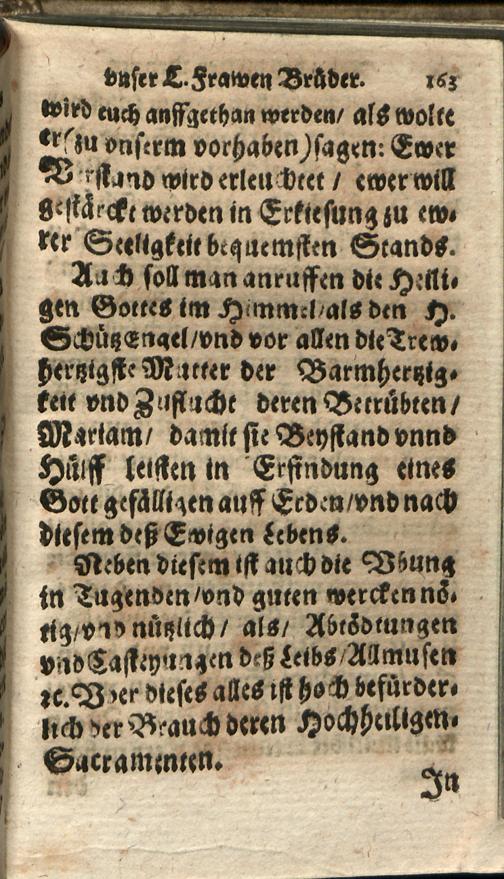 vnser L. Frawen Brüder. 163
wird euch auffgethan werden/ als wolte
er (zu vnserm vorhaben) sagen: Ewer
Verstand wird erleuchtet / ewer will
gestärckt werden in Erkiesung zu ew-
rer Seeligkeit bequemsten Stands.
Auch soll man anruffen die Heili-
gen Gottes im Himmel/als den H.
Schützengel/vnd vor allen die Trew-
hertzigste Mutter der Barmhertzig-
keit vnd Zuflucht deren Betrübten/
Mariam/ damit sie Beystand vnnd
Hülff leisten in Erfindung eines
Gott gefälligen auff Erden/vnd nach
diesem deß Ewigen Lebens.
Neben diesem ist auch die Vbung
in Tugenden/vnd guten wercken nö-
tig/vnd nützlich/ als/ Abtödtungen
vnd Casteyungen deß Leibs/Allmusen
ꝛc. Vber dieses alles ist hoch befürder-
lich der Brauch deren Hochheiligen-
Sacramenten.
In